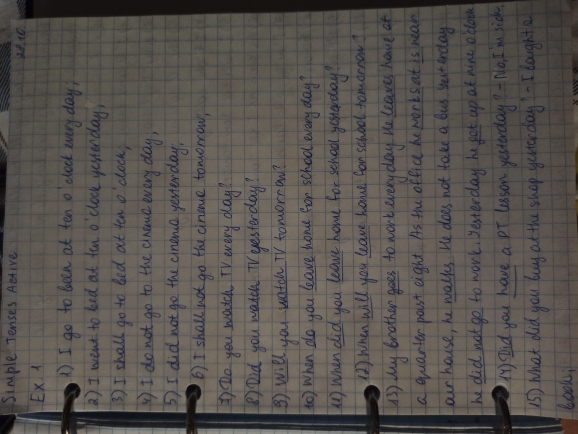 Simple Tenses Active 28.10.
Ex 1
1) I go to been at ten o'clock every day;
2) I went to bed at ten o'clock yesterday,
3) I shall go to bed at ten o'clock,
4) I do not go to the cinema every day,
5) I did not go the cinema yesterday.
6) I shall not go the cinema tomorrow,
7) Do you watch TV every day?
8) Did you watch TV yesterday?
9) Will you watch TV tomorrow?
10) When do you leave home for school every day?
11) When did you leave home for school yesterday?
12) When will you leave home for school tomorrow?
13) My brother goes to work every day. He leaves home at
a quarter past eight. As the office he works at is near
our house, he walks. He does not take a bus yesterday
he did not go to work. Yesterday he got up at nine o'clock
14) Did you have a PT lesson yesterday? - No, I'm sick.
15) What did you buy at the shop yesterday? - I bought a
book,